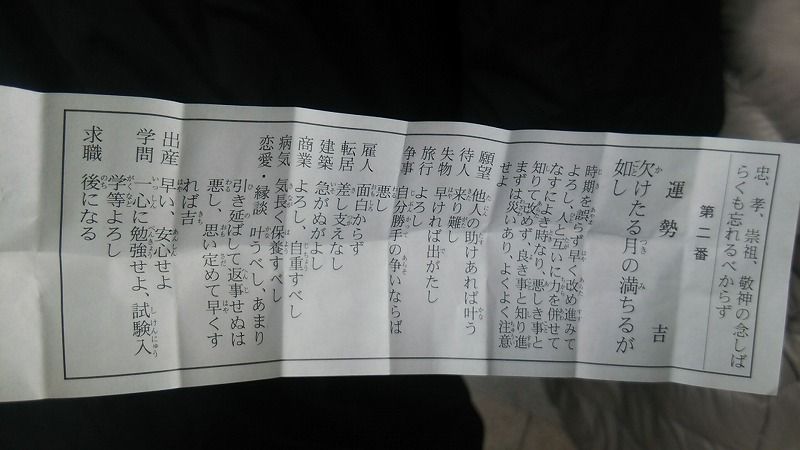 忠、孝、崇祖、敬神の念しば
らくも忘れるべからず
第二番
運勢 吉
欠けたる月の満ちるが
如し
時期を誤らず早く改め進みて
よろし、人と互いに力を併せて
なすによき時なり、悪しき事と
知りて改めず、良き事と知り進
まずは災いあり、よくよく注意
せよ
願望 他人の助けあれば叶う
待人 来り難し
失物 早ければ出がたし
旅行 よろし
争事 自分勝手の争いならば
悪し
雇人 面白からず
転居 差し支えなし
建築 急がぬがよし
商業 よろし、自重すべし
病気 気長く保養すべし
恋愛・縁談 叶うべし、あまり
引き延ばして返事せぬは
悪し、思い定めて早くす
れば吉
出産 早い、安心せよ
学問 一心に勉強せよ、試験入
学等よろし
求職 後になる